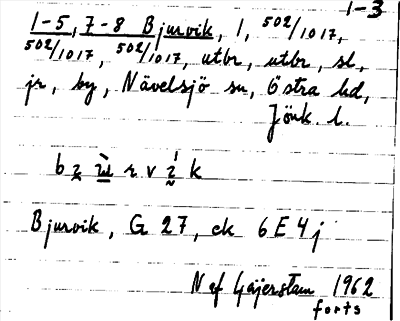 1-3
1-5, 7-8 Bjurvik, 1, 502/1017,
502/1017, 502/1017, utbr, utbr, sl,
jr, by, Nävelsjö sn, Östra hd,
Jönk. l.
Bjurvik, G 27, ek 6E4j
N af Gäjerstam 1962
forts